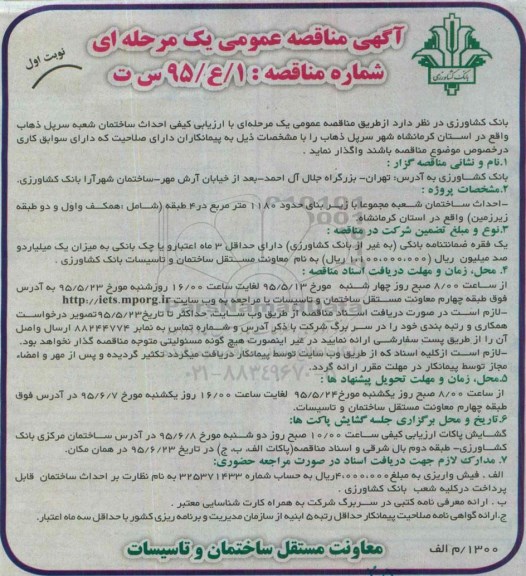 آگهی مناقصه عمومی یک مرحله ای
شماره مناقصه : ۹۵/ع/۱ س ت
نوبت اول
بانک کشاورزی
بانک کشاورزی در نظر دارد ازطریق مناقصه عمومی یک مرحله‌ای با ارزیابی کیفی احداث ساختمان شعبه سرپل ذهاب
واقع در استان کرمانشاه شهر سرپل ذهاب را با مشخصات ذیل به پیمانکاران دارای صلاحیت که دارای سوابق کاری
درخصوص موضوع مناقصه باشند واگذار نماید .
۱.نام و نشانی مناقصه گزار :
بانک کشاورزی به آدرس: تهران- بزرگراه جلال آل احمد-بعد از خیابان آرش مهر-ساختمان شهرآرا بانک کشاورزی.
۲.مشخصات پروژه :
-احداث ساختمان شعبه مجموعا با زیر بنای حدود ۱۱۸۰ متر مربع در۴ طبقه (شامل :همکف واول و دو طبقه
زیرزمین) واقع در استان کرمانشاه.
۳.نوع و مبلغ تضمین شرکت در مناقصه :
یک فقره ضمانتنامه بانکی (به غیر از بانک کشاورزی) دارای حداقل ۳ ماه اعتباریا چک بانکی به میزان یک میلیاردو
صد میلیون ریال (۱،۱۰۰،۰۰۰،۰۰۰ ریال) به نام معاونت مستقل ساختمان و تاسیسات بانک کشاورزی .
۴. محل، زمان و مهلت دریافت اسناد مناقصه :
از ساعت ۸/۰۰ صبح روز چهار شنبه مورخ ۹۵/۵/۱۳ لغایت ساعت ۱۶/۰۰ روزشنبه مورخ ۹۵/۵/۲۳ به آدرس
فوق طبقه چهارم معاونت مستقل ساختمان و تاسیسات یا مراجعه به وب سایت http://iets.mporg.ir
-لازم است در صورت دریافت اسناد مناقصه از طریق وب سایت، حداکثر تا تاریخ۹۵/۵/۲۳تصویر درخواست
همکاری و رتبه بندی خود را در سر برگ شرکت با ذکر آدرس و شماره تماس به نمابر ۸۸۲۴۴۷۷۴ ارسال واصل
آن را از طریق پست سفارشی ارائه نمایید در غیر اینصورت هیچ گونه مسئولیتی متوجه مناقصه گذار نخواهد بود.
-لازم است ازکلیه اسناد که از طریق وب سایت توسط پیمانکار دریافت میگردد تکثیر گردیده و پس از مهر و امضاء
مجاز توسط پیمانکار در مهلت مقرر ارائه گردد.
۵.محل، زمان و مهلت تحویل پیشنهاد ها :
از ساعت ۸/۰۰ صبح روز یکشنبه مورخ۹۵/۵/۲۴ لغایت ساعت ۱۶/۰۰ روز یکشنبه مورخ ۹۵/۶/۷ در آدرس فوق
طبقه چهارم معاونت مستقل ساختمان و تاسیسات.
۶.تاریخ و محل برگزاری جلسه گشایش پاکت ها:
گشایش پاکات ارزیابی کیفی ساعت ۱۰/۰۰ صبح روز دو شنبه مورخ ۹۵/۶/۸ در آدرس ساختمان مرکزی بانک
کشاورزی- طبقه دوم بال شرقی و اسناد مناقصه(پاکات الف، ب، ج) در تاریخ ۹۵/۶/۲۳ در همان مکان.
۷. مدارک لازم جهت دریافت اسناد در صورت مراجعه حضوری:
الف . فیش واریزی به مبلغ۴،۰۰۰،۰۰۰ریال به حساب شماره ۳۲۵۳۷۱۴۳۳ به نام نظارت بر احداث ساختمان قابل
پرداخت درکلیه شعب بانک کشاورزی .
ب . ارائه معرفی نامه کتبی در سربرگ شرکت به همراه کارت شناسایی معتبر .
ج.ارائه گواهی نامه صلاحیت پیمانکار حداقل رتبه ۵ ابنیه از سازمان مدیریت و برنامه ریزی کشور با حداقل سه ماه اعتبار.
معاونت مستقل ساختمان و تاسیسات
۱۳۰۰/م الف